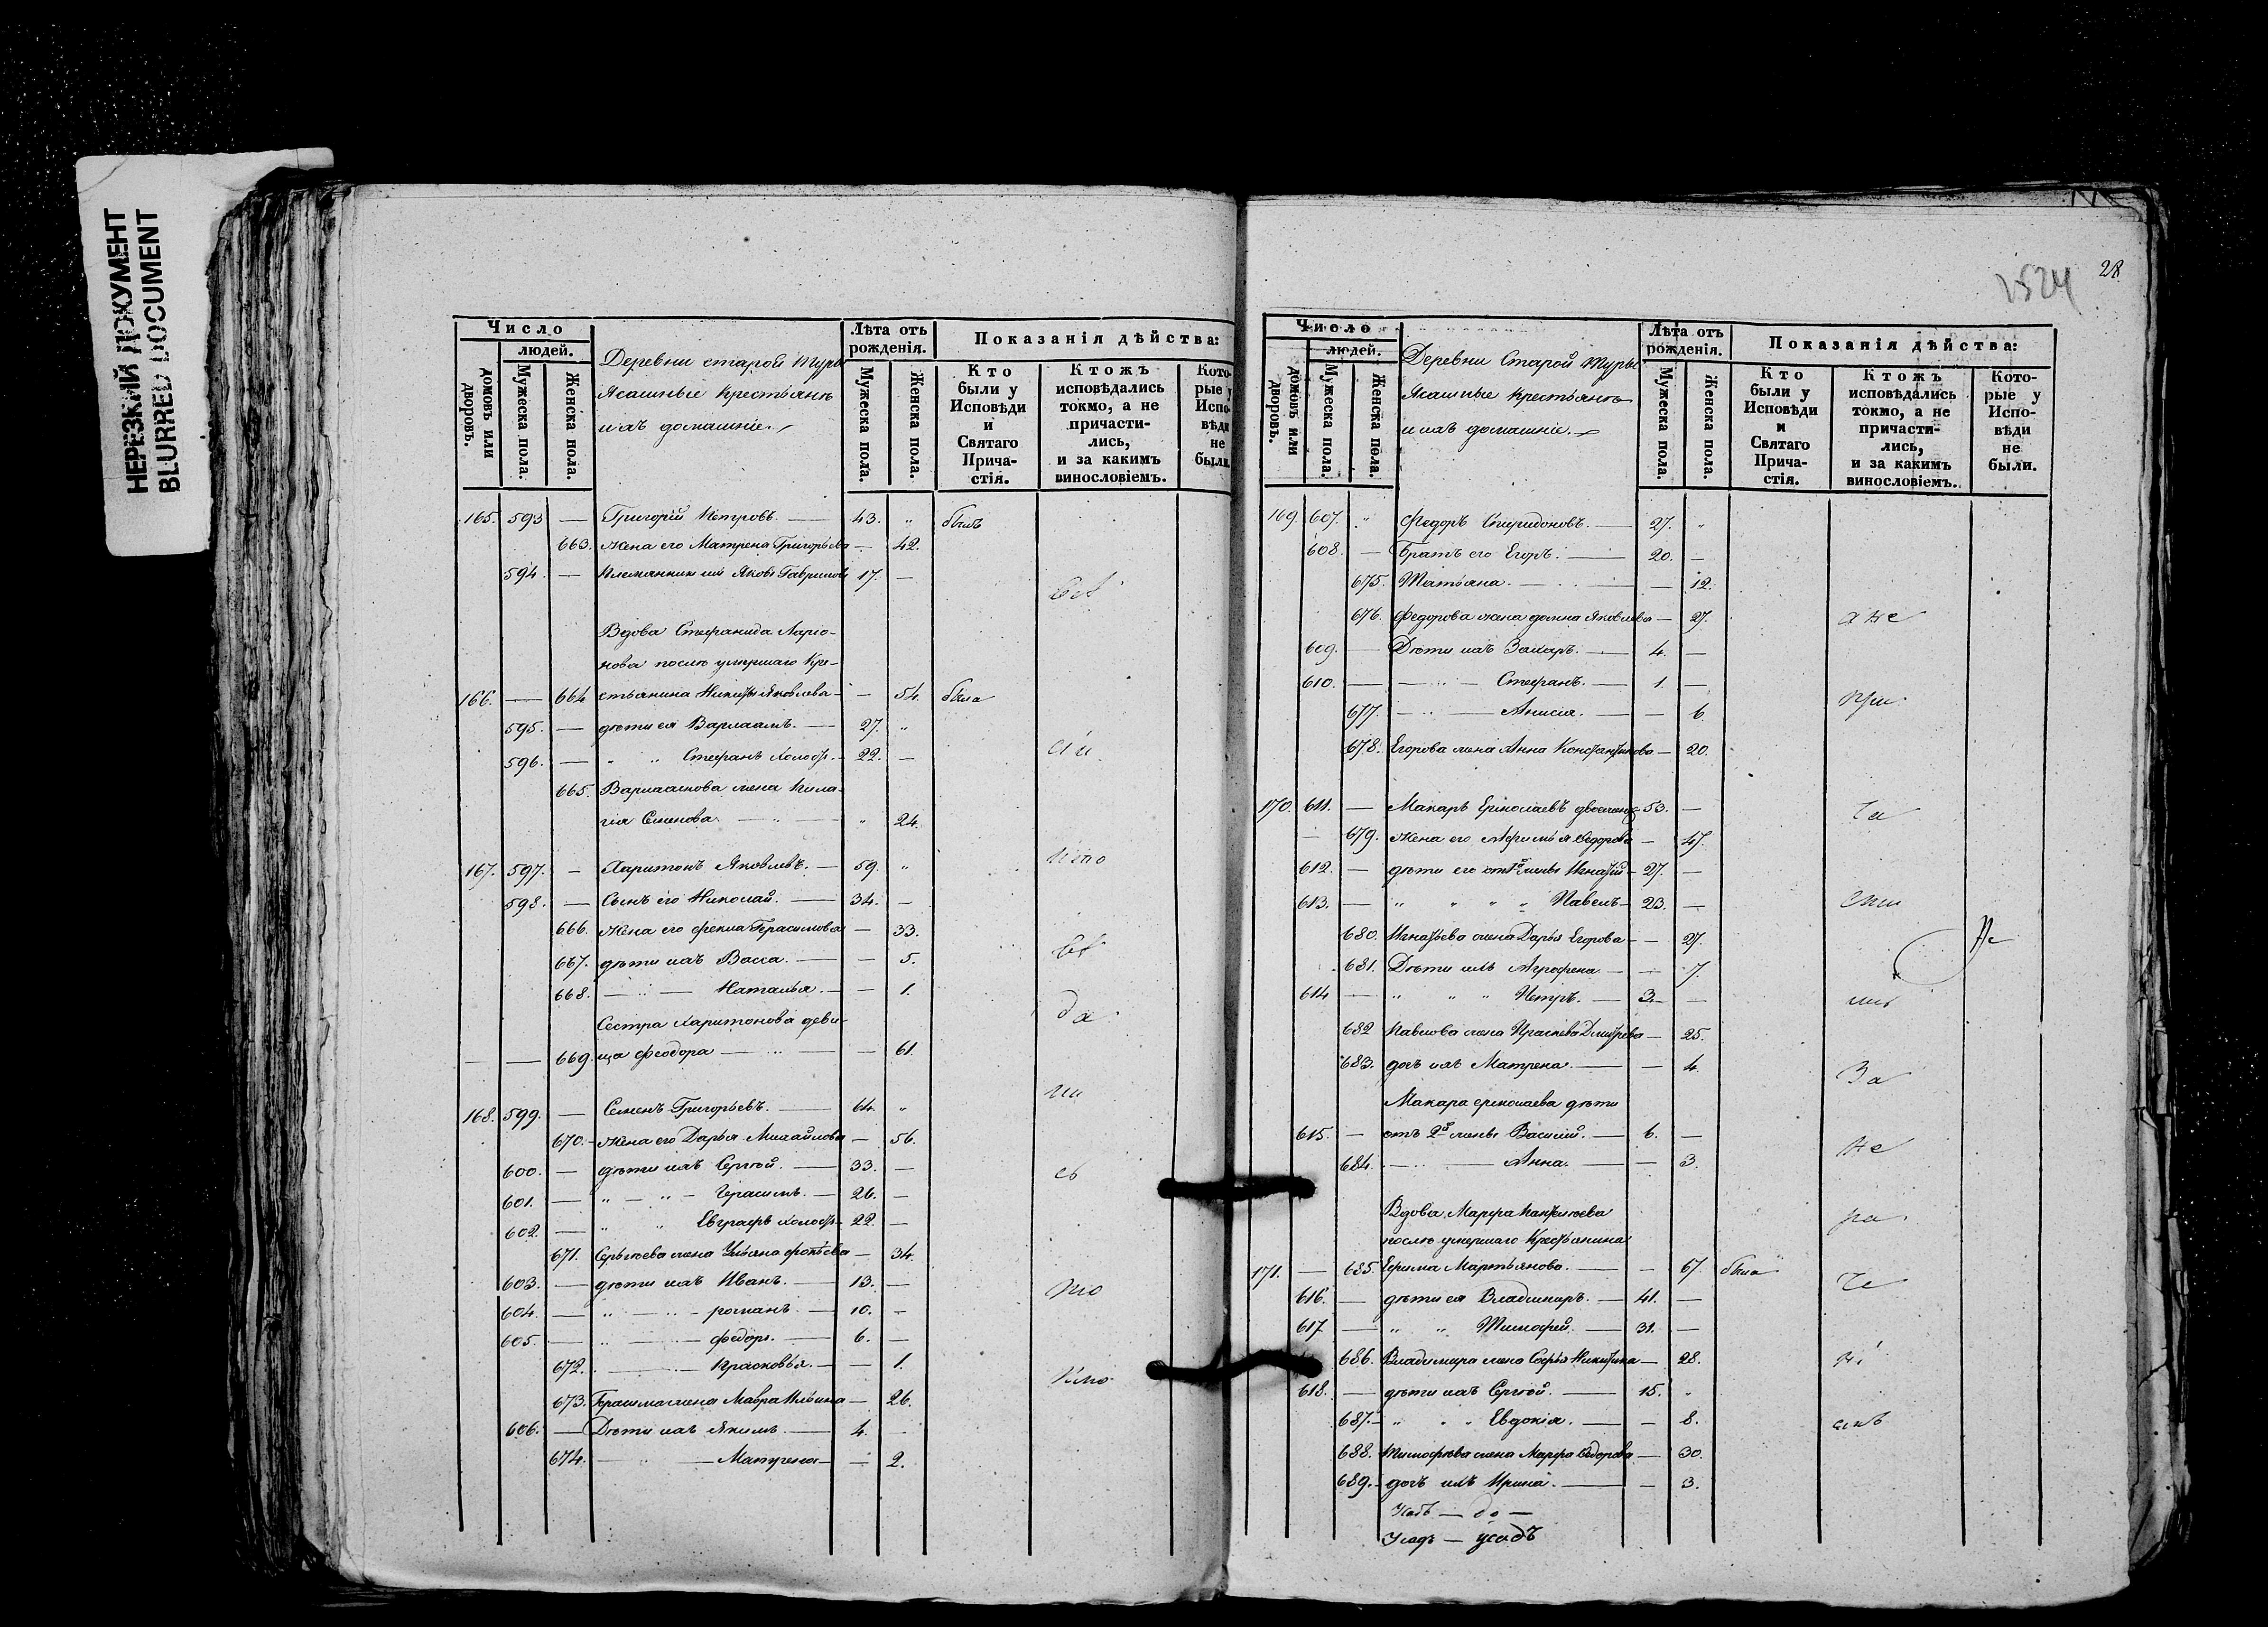 НЕРЕЗКИЙ ДОКУМЕНТ
BLURRED DOCUMENT
Число
людей.
домовъ или дворовъ.
Мужеска пола.
Женска пола.
Деревни старой Туры
Ясашные Крестьянъ
ихъ домашніе.
Лѣта отъ рожденія.
Мужеска пола.
Женска пола.
Показанія дѣйства:
Кто были у Исповѣди и Святаго Прича-стія.
Ктожъ исповѣдались токмо, а не причасти-лись, и за какимъ винословіемъ.
Кото-рые у Испо-вѣди не были.
165. 593 — Григорій Петровъ. — 43. " былъ
663. жена его Матрена Григорьева — 42.
594. — Племянникъ Яковъ Гаврилов 17. —
Вдова Стефанида Ларіо-
нова послѣ умершаго Кре-
166. — 664 стьянина Никиты Яковлева — — 54. была
595. — дѣти ея Варлаамъ. — 27. "
596. — " " Стефанъ холостъ — 22. —
665. Варлаамова жена Пела-
гія Семенова — " 24.
167. 597. — Харитонъ Яковлевъ. — 59. "
598. — Сынъ его Николай. — 34. —
666. Жена его Фекла Герасимова — 33.
667. дѣти ихъ Васса. — — 5.
668. — Наталья. — — 1.
Сестра Харитонова деви-
— — 669. ца Феодора — — 61.
168. 599. — Семенъ Григорьевъ. — 64. "
670. Жена его Дарья Михайлова — 56.
600. — дѣти ихъ Сергѣй. — 33. —
601. — " — " — Герасимъ. — 26. —
602. — " " Евграфъ холостъ — 22. —
671. Сергѣева жена Ульяна — 34.
603. — дѣти ихъ Иванъ. — 13. —
604. — " — романъ. — 10. —
605. — " — федоръ. — 6. —
672. — Прасковья. — — 1.
673. Герасима жена Мавра Ильина — 26.
606. — Дѣти ихъ Якимъ. — 4. —
674. — Матрена — — 2.
да
28
1524
Число
людей.
домовъ или дворовъ.
Мужеска пола.
Женска пола.
Деревни Старой Туры
Ясашные Крестьянъ
и ихъ домашніе.
Лѣта отъ рожденія.
Мужеска пола.
Женска пола.
Показанія дѣйства:
Кто были у Исповѣди и Святаго Прича-стія.
Ктожъ исповѣдались токмо, а не причасти-лись, и за какимъ винословіемъ.
Кото-рые у Испо-вѣди не были.
169. 607. " Федоръ Спиридоновъ. — 27. "
608. — Братъ его Егоръ. — 20. —
675. Татьяна. — — 12.
676. Федорова жена Домна Яковлева — 27. а не
609. — Дѣти ихъ Захаръ. — 4. —
610. — — Стефанъ. — 1. —
677. — Анисія. — — 6. при
678. Егорова жена Анна Константинова — 20.
170. 611. — Макаръ Ермолаевъ двоеженецъ 53. — ча
679. Жена его Афимья Федорова — 47.
612. — дѣти его от 1й жены Игнатій — 27. —
613. — " " " " Павелъ — 23. — сти
680. Игнатьева жена Дарья Егорова — — 27. Не
681. Дѣти ихъ Агрофена — — 7.
614 — " " " Петръ. — 3. —
682 Павлова жена Праскева Дмитрева — 25.
683. дочь ихъ Матрена. — — 4. За
Макара ермолаева дѣти
615. — отъ 2й жены Василій. — 6. — не
684. — Анна. — — 3.
Вдова Марфа Пантелеева ра
послѣ умершаго Крестьянина
171. — 685. Ефима Мартьянова. — — 67. была че
616. — дѣти ея Владимиръ. — 41. —
617 — " " Тимофей. — 31. —
686. Владимира жена Софья Никитина — 28. ні
618. — дѣти ихъ Сергѣй. — 15. "
687. " " " Евдокія. — — 8. емъ
688. Тимофѣева жена Марфа Федорова — 30.
689. дочь ихъ Ирина. — — 3.